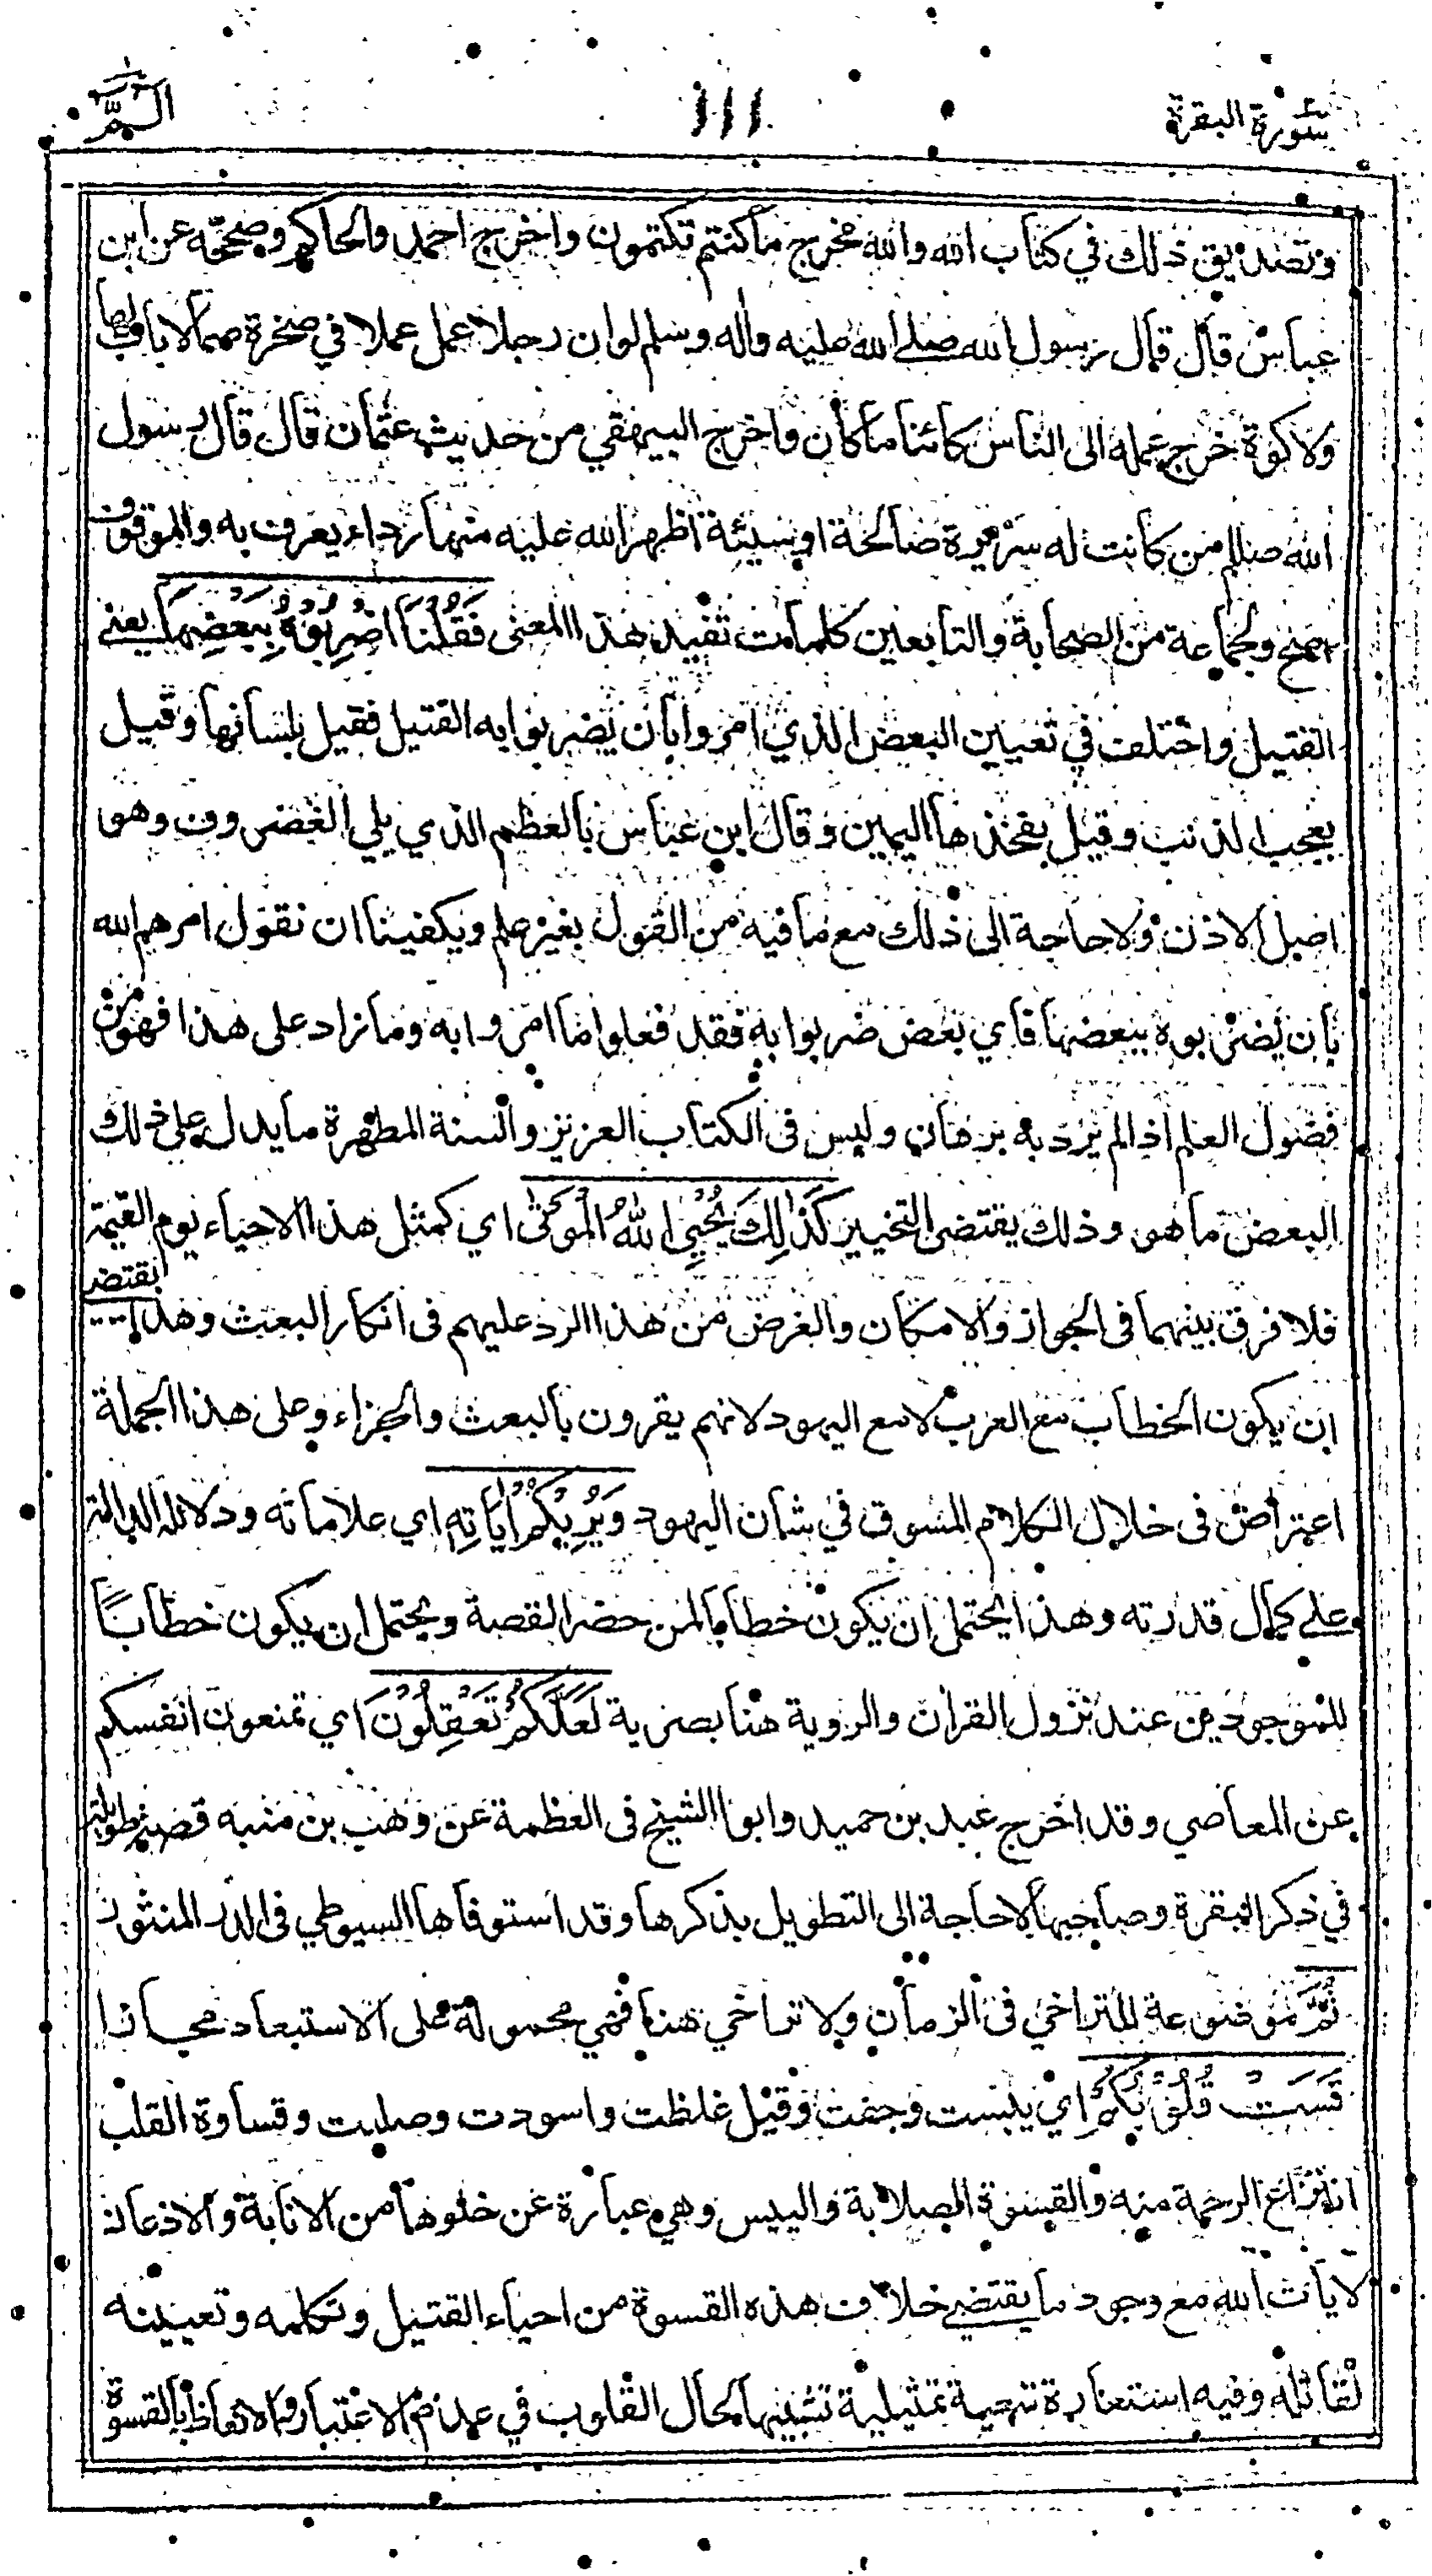 سورة البقرة ١١١ الٓمّٓ
وتصديق ذلك في كتاب الله والله مخرج ما كنتم تكتمون واخرج احمد والحاكم وصححه عن ابن
عباس قال قال رسول الله صلى الله عليه واله وسلم لو ان رجلا عمل عملا في صخرة صماء لا باب لها
ولا كوة خرج عمله الى الناس كائنا ما كان واخرج البيهقي من حديث عثمان قال قال رسول
الله صللم من كانت له سريرة صالحة او سيئة اظهر الله عليه منها رداء يعرف به والموقوف
اصح ولجماعة من الصحابة والتابعين كلمات تفيد هذا المعنى فَقُلْنَا اضْرِبُوْهُ بِبَعْضِهَا يعني
القتيل واختلف في تعيين البعض الذي امروا بان يضربوا به القتيل فقيل بلسانها وقيل
بعجب الذنب وقيل بفخذها اليمين وقال ابن عباس بالعظم الذي يلي الغضروف وهو
اصل الاذن ولا حاجة الى ذلك مع ما فيه من القول بغير علم ويكفينا ان نقول امرهم الله
بان يضربوه ببعضها فاي بعض ضربوا به فقد فعلوا ما امروا به وما زاد على هذا فهو من
فضول العلم اذا لم يرد به برهان وليس فى الكتاب العزيز والسنة المطهرة ما يدل على ذلك
البعض ما هو وذلك يقتضي التخيير كَذٰلِكَ يُحْيِي اللهُ الْمَوْتٰى اي كمثل هذا الاحياء يوم القيمة
فلا فرق بينهما فى الجواز والامكان والغرض من هذا الرد عليهم فى انكار البعث وهذا يقتضي
ان يكون الخطاب مع العرب لا مع اليهود لانهم يقرون بالبعث والجزاء وعلى هذا الجملة
اعتراض فى خلال الكلام المسوق في شان اليهود وَيُرِيْكُمْ اٰيَاتِهٖ اي علاماته ودلائله الدالة
على كمال قدرته وهذا يحتمل ان يكون خطابا لمن حضر القصة ويحتمل ان يكون خطابًا
للموجودين عند نزول القرآن والروية هنا بصرية لَعَلَّكُمْ تَعْقِلُوْنَ اي تمنعون انفسكم
عن المعاصي وقد اخرج عبد بن حميد وابو الشيخ فى العظمة عن وهب بن منبه قصة طويلة
في ذكر البقرة وصاحبها لا حاجة الى التطويل بذكرها وقد استوفاها السيوطي فى الدر المنثور
ثُمَّ موضوعة للتراخي فى الزمان ولا تراخي هنا فهي محمولة على الاستبعاد مجازا
قَسَتْ قُلُوْبُكُمْ اي يبست وجفت وقيل غلظت واسودت وصلبت وقساوة القلب
انتزاع الرحمة منه والقسوة الصلابة واليبس وهي عبارة عن خلوها من الانابة والاذعان
لايات الله مع وجود ما يقتضي خلاف هذه القسوة من احياء القتيل وتكلمه وتعيينه
لقاتله وفيه استعارة تبعية تمثيلية تشبيها لحال القلوب في عدم الاعتبار والاتعاظ بالقسوة